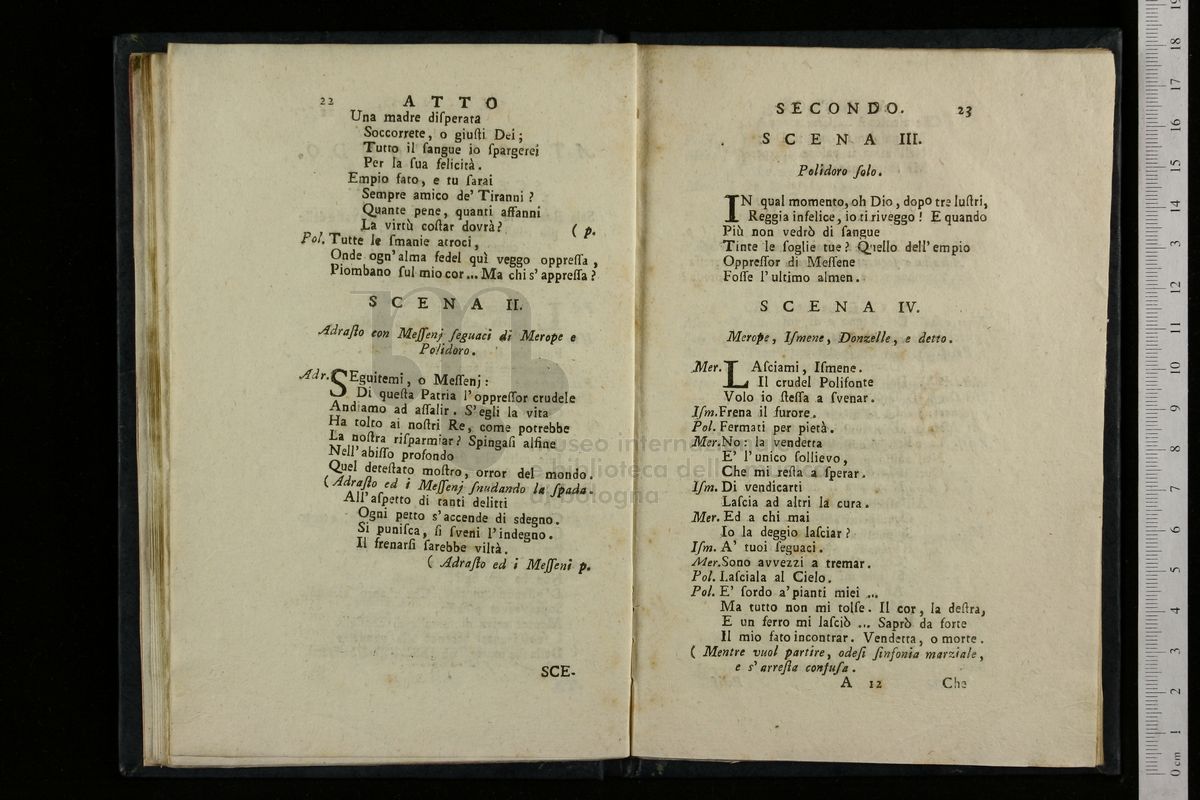 22 ATTO
Una madre diſperata
Soccorrete, o giuſti Dei;
Tutto il ſangue io ſpargerei
Per la ſua felicità.
Empio fato, e tu ſarai
Sempre amico de' Tiranni?
Quante pene, quanti affanni
La virtù coſtar dovrà? ( p.
Pol. Tutte le ſmanie atroci,
Onde ogn'alma fedel quì veggo oppreſſa,
Piombano ſul mio cor... Ma chi s'appreſſa?
SCENA II.
Adraſto con Meſſenj ſeguaci di Merope e
Polidoro.
Adr. SEguitemi, o Meſſenj:
Di queſta Patria l'oppreſſor crudele
Andiamo ad aſſalir. S'egli la vita
Ha tolto ai noſtri Re, come potrebbe
La noſtra riſparmiar? Spingaſi alfine
Nell'abiſſo profondo
Quel deteſtato moſtro, orror del mondo.
( Adraſto ed i Meſſenj ſnudando la ſpada.
All'aſpetto di tanti delitti
Ogni petto s'accende di sdegno.
Si puniſca, ſi ſveni l'indegno.
Il frenarſi ſarebbe viltà.
( Adraſto ed i Meſſeni p.
SCE-
SECONDO. 23
SCENA III.
Polidoro ſolo.
IN qual momento, oh Dio, dopo tre luſtri,
Reggia infelice, io ti riveggo! E quando
Più non vedrò di ſangue
Tinte le ſoglie tue? Quello dell'empio
Oppreſſor di Meſſene
Foſſe l'ultimo almen.
SCENA IV.
Merope, Iſmene, Donzelle, e detto.
Mer. LAſciami, Iſmene.
Il crudel Polifonte
Volo io ſteſſa a ſvenar.
Iſm. Frena il furore.
Pol. Fermati per pietà.
Mer. No: la vendetta
E' l'unico ſollievo,
Che mi reſta a ſperar.
Iſm. Di vendicarti
Laſcia ad altri la cura.
Mer. Ed a chi mai
Io la deggio laſciar?
Iſm. A' tuoi ſeguaci.
Mer. Sono avvezzi a tremar.
Pol. Laſciala al Cielo.
Pol. E' ſordo a' pianti miei ...
Ma tutto non mi tolſe. Il cor, la deſtra,
E un ferro mi laſciò ... Saprò da forte
Il mio fato incontrar. Vendetta, o morte.
( Mentre vuol partire, odeſi ſinfonia marziale,
e s'arreſta confuſa.
A 12 Che
museo internazionale
e biblioteca della musica
di bologna
0 cm 1 2 3 4 5 6 7 8 9 10 11 12 13 14 15 16 17 18 19